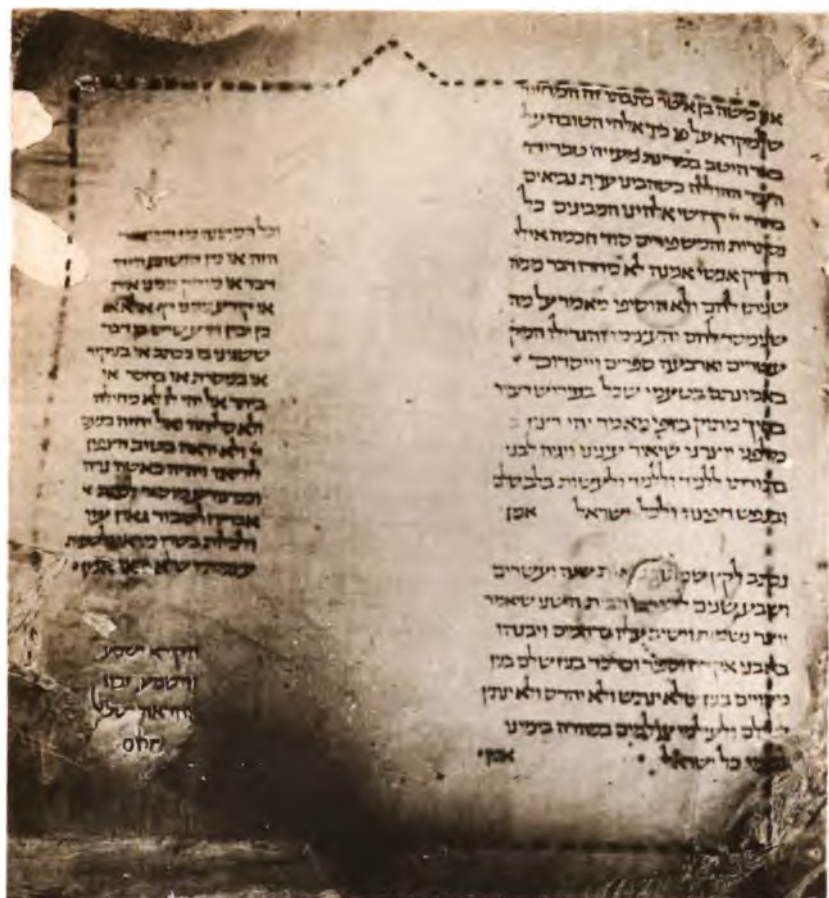 אני משה בן אשר כתבתי זה המחזור
של מקרא על פי כיד אלהי הטובה עלי
באר היטב במדינת מעזיה טבריה
העיר ההוללה כשהבינו עדת נביאים
בחורי יי קדושי אלהינו המבינים כל
נסתרות והמשפירים סוד חכמה אילי
הצדק אנשי אמנה לא כחדו דבר ממה
שניתן להם ולא הוסיפו מאמר על מה
שנמסר להם והעצימו והגדילו המק
עשרים וארבעה ספרים וייסדום
באמונתם בטעמי שכל בפירוש דיבור
בחיך מתוק ביופי מאמר יהי רצון
מלפני יוצרנו שיאיר עינינו ויגיה לבנו
בתורתו ללמוד וללמד ולעשות בלב שלם
ובנפש חפיצה ולכל ישראל אמן
נכתב לקץ שמונה מאות ועשרים
ושבע שנים לחורבן הבית השני
יוצר נשמות וישוב עליו ברחמים ויבנהו
באבני אקדח וספיר וכדכד בנין שלם בנין
בנין שלא ינתש ולא יהרס ולא ינתץ
לעולם ולעולמי עולמים במהרה בימינו
ובימי כל ישראל אמן
וכל המשנה מן המחזור
הזה או מן
דבר או
או
כן יבין
ששנינו בו בכתב או בניקוד
או במסרת או בחסר או
ביתר אל יהי לו לא מחילה
ולא סליחה ואל יהיה בנעם
יי ולא יראה בטוב הצפון
ליריאיו ויהיה כאשה נדה
אמרין לשבור גאון עוזו
עצמותיו שלא ראו אמן
הקורא ישמע
והשומע יבין
והרואה ישכיל
חתם